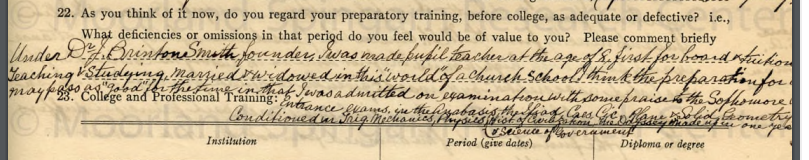 22. As you think of it now, do you regard your preparatory training, before college, as adequate or defective? i.e.,
What deficiencies or omissions in that period do you feel would be of value to you? Please comment briefly
Under Dr. J. Brinton Smith founder, I was made pupil teacher at the age of first for board & tuition
Teaching & Studying, married & widowed in this world of a church school. I think the preparation for
may pass as "good for the time" in that I was admitted on examination with some praise to the Sophomore
23. College and Professional Training:
entrance exams. in the Anabasis, the Iliad, Caes Cic, Plane & Solid Geometry
Conditioned in Trig, Mechanics, Physics, Hist of Civilization, the Odyssey made up in one year
& Science of Government
Institution Period (give dates) Diploma or degree